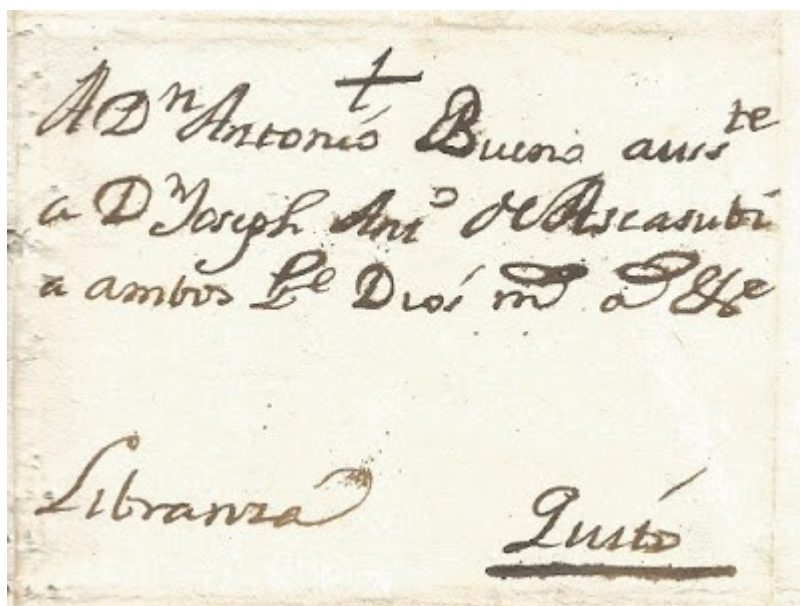 †
A Dn Antonió Bueno auste
a Dn Joseph Anto de Ascasubi
a ambos Ge Dios ms as &e
Libranza
Quito